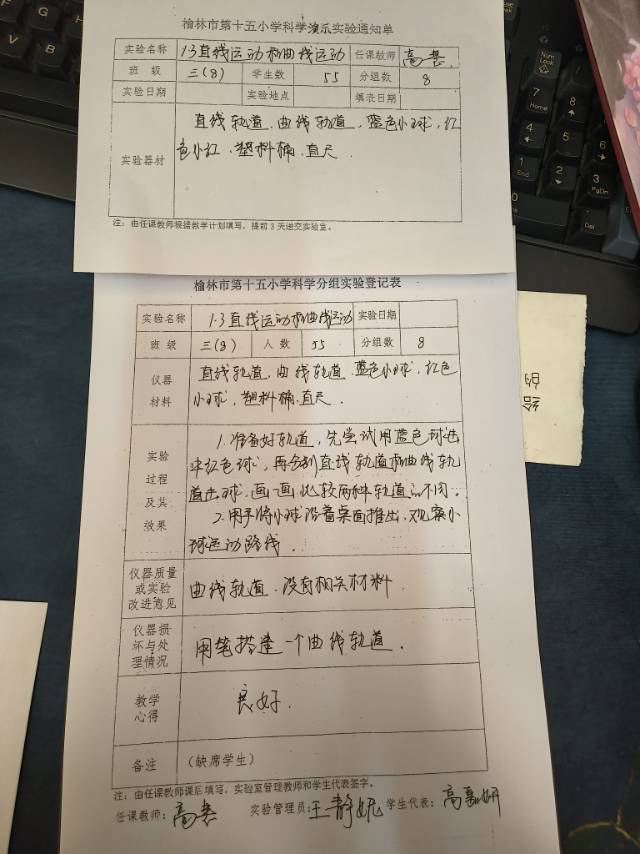 榆林市第十五小学科学演示实验通知单
实验名称 1.3直线运动和曲线运动 任课教师 高
班 级 三(8) 学生数 55 分组数 8
实验日期 实验地点 填表日期
实验器材 直线轨道、曲线轨道、蓝色小球、红
色小红、塑料桶、直尺
注：由任课教师根据教学计划填写，提前3天送交实验室。
榆林市第十五小学科学分组实验登记表
实验名称 1.3直线运动和曲线运动 实验日期
班 级 三(8) 人 数 55 分组数 8
仪器材料 直线轨道、曲线轨道、蓝色小球、红色
小球、塑料桶、直尺
实验过程及其效果 1.准备好轨道，先尝试用蓝色球进
红色球，再分别直线轨道和曲线轨
道击球，画一画，比较两种轨道的不同。
2.用手将小球沿着桌面推出，观察小
球运动路线
仪器质量或实验改进意见 曲线轨道、没有相关材料
仪器损坏与处理情况 用笔搭建一个曲线轨道。
教学心得 良好.
备注 (缺席学生)
注：由任课教师课后填写，实验室管理教师和学生代表签字。
任课教师：高 实验管理员：王静妮 学生代表：高